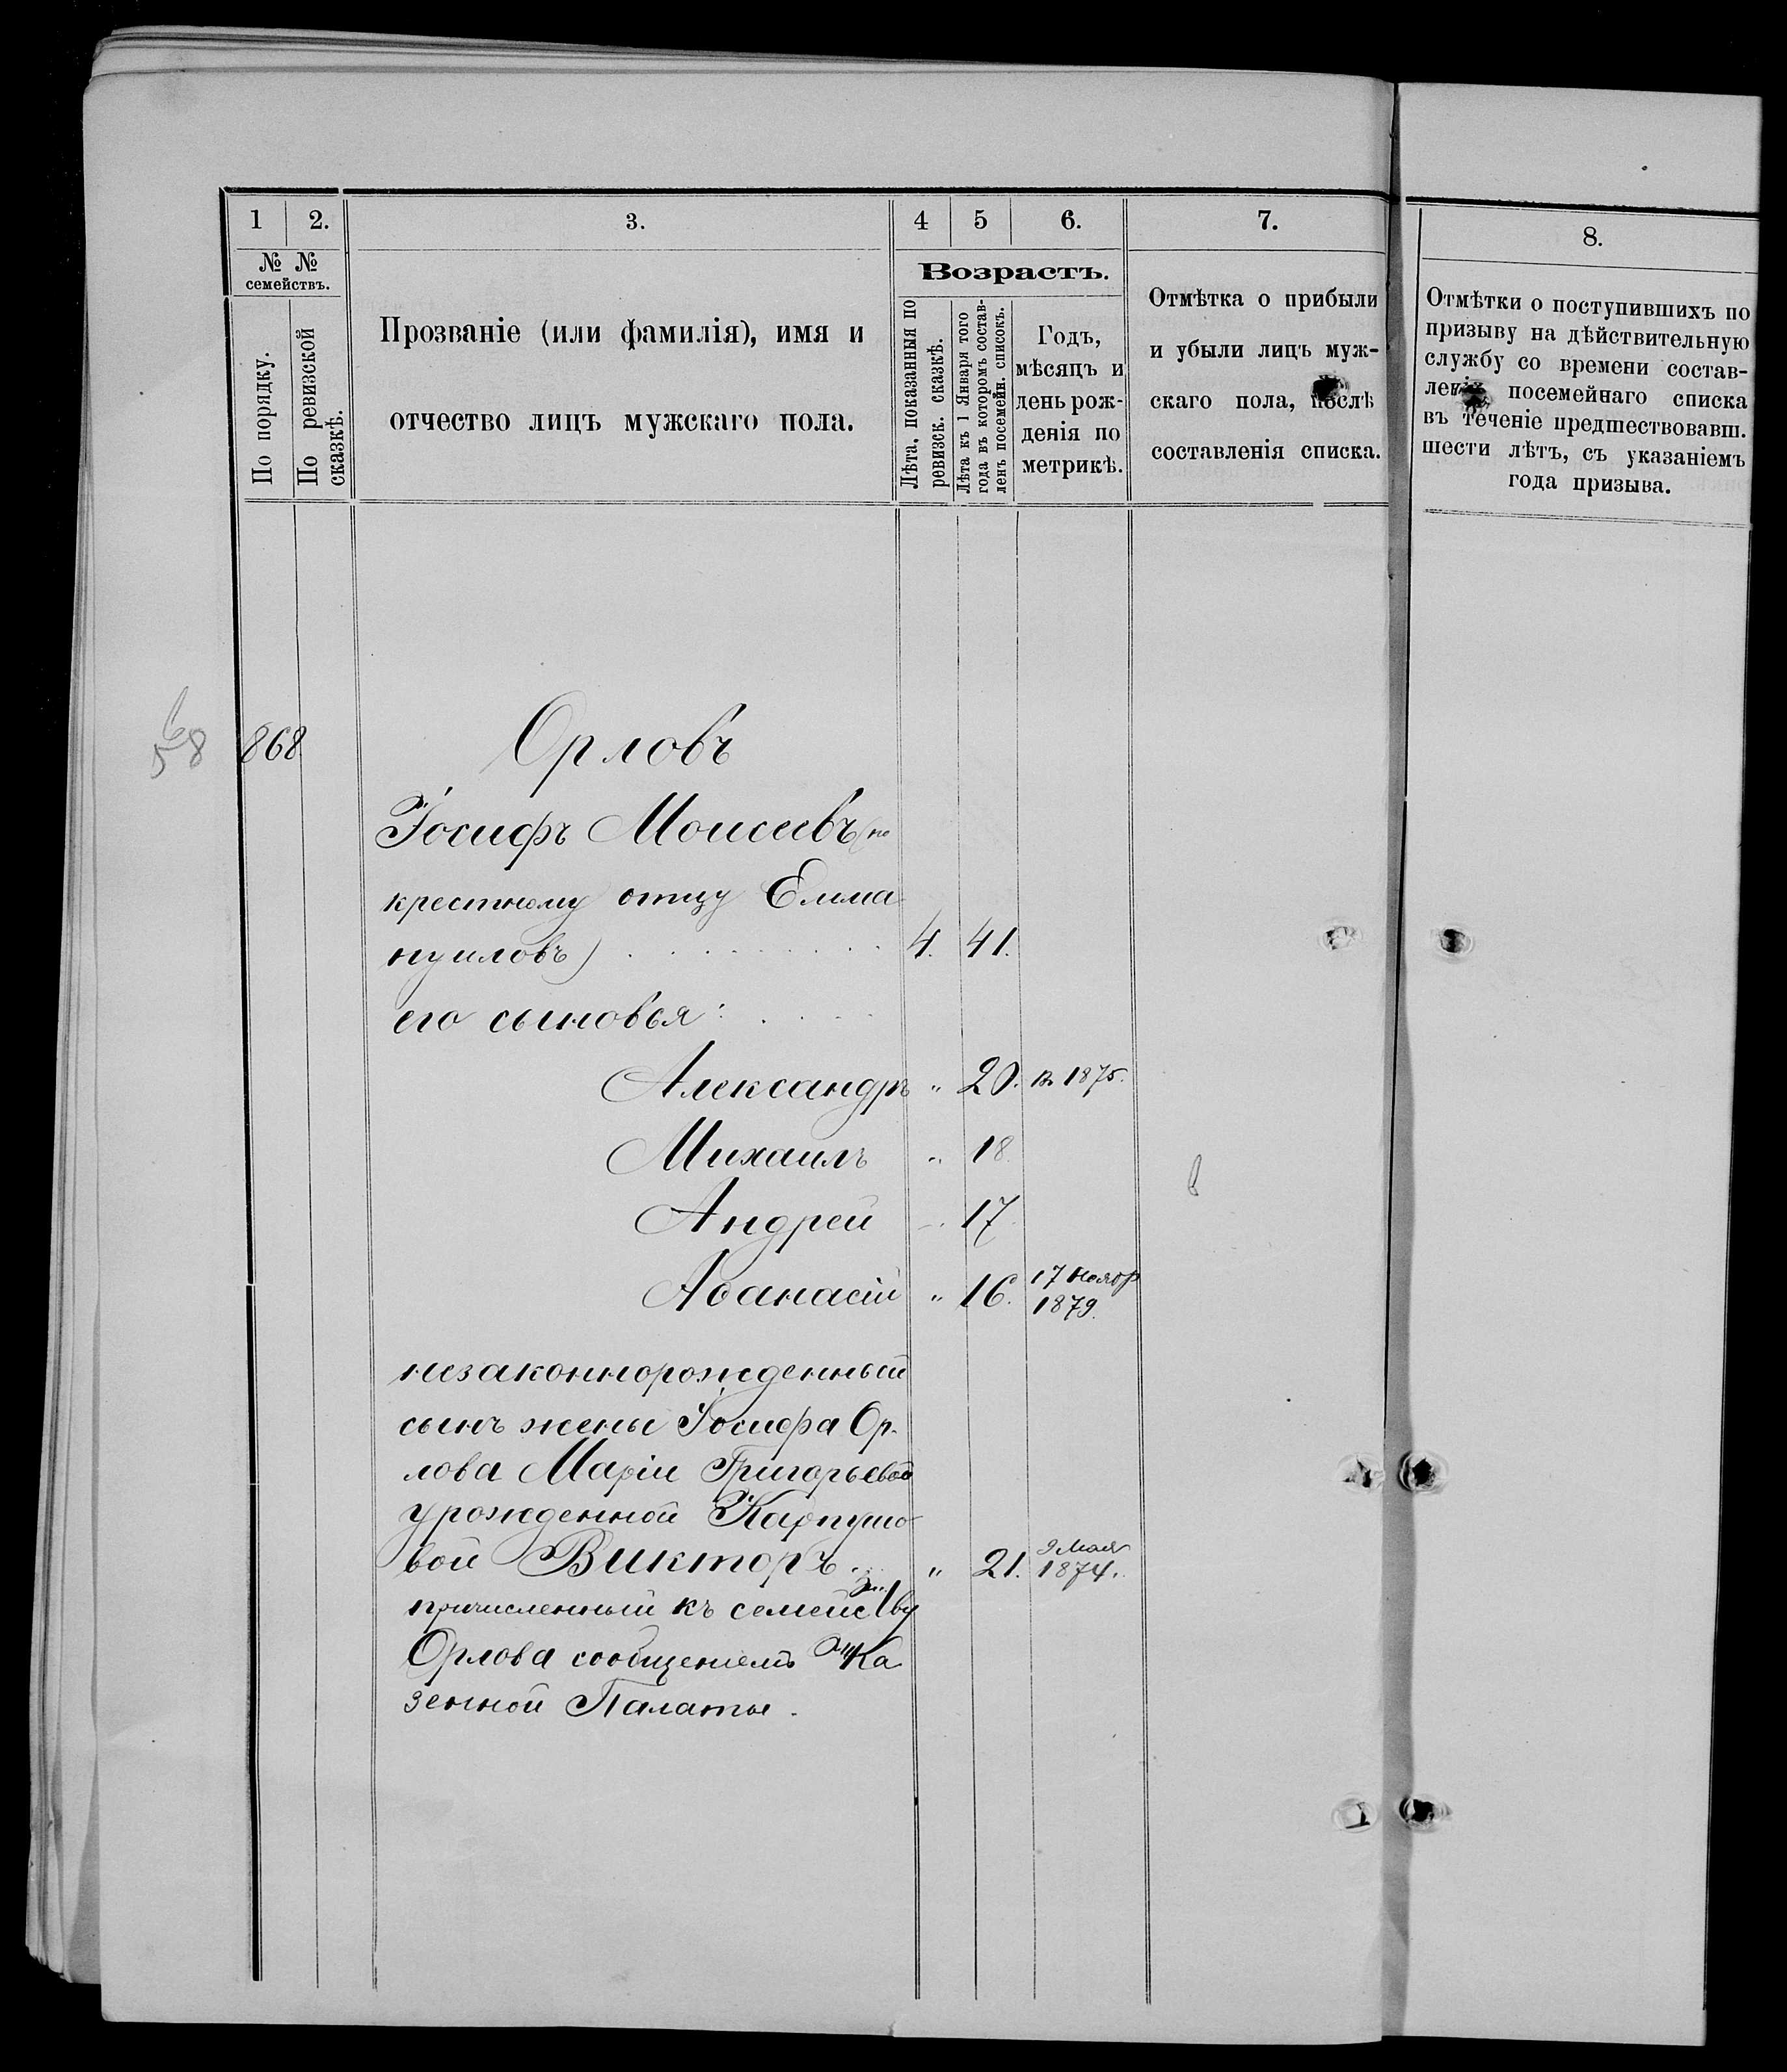 1 2. 3. 4 5 6. 7. 8.
№ № семействъ.
По порядку.
По ревизской сказкѣ.
Прозваніе (или фамилія), имя и
отчество лицъ мужскаго пола.
Возрастъ.
Лѣта, показанныя по
ревизск. сказкѣ.
Лѣта къ 1 Января того
года въ которомъ состав-
ленъ посемейн. списокъ.
Годъ,
мѣсяцъ и
день рож-
денія по
метрикѣ.
Отмѣтка о прибыли
и убыли лицъ муж-
скаго пола, послѣ
составленія списка.
Отмѣтки о поступившихъ по
призыву на дѣйствительную
службу со времени состав-
ленія посемейнаго списка
въ теченіе предшествовавш.
шести лѣтъ, съ указаніемъ
года призыва.
868 Орловъ
Іосифъ Моисеевъ (по
крестному отцу Емма
нуиловъ) 4. 41.
его сыновья:
Александръ " 20. 1875.
Михаилъ " 18
Андрей " 17
Аѳанасій " 16. 17 Нояб
1879.
незаконнорожденный
сынъ жены Іосифа Ор-
лова Маріи Григорьевой
урожденной Карпушо
вой Викторъ " 21. 9 Мая
1874.
причисленный къ семейству
Орлова сообщеніемъ Ка
зенной Палаты.